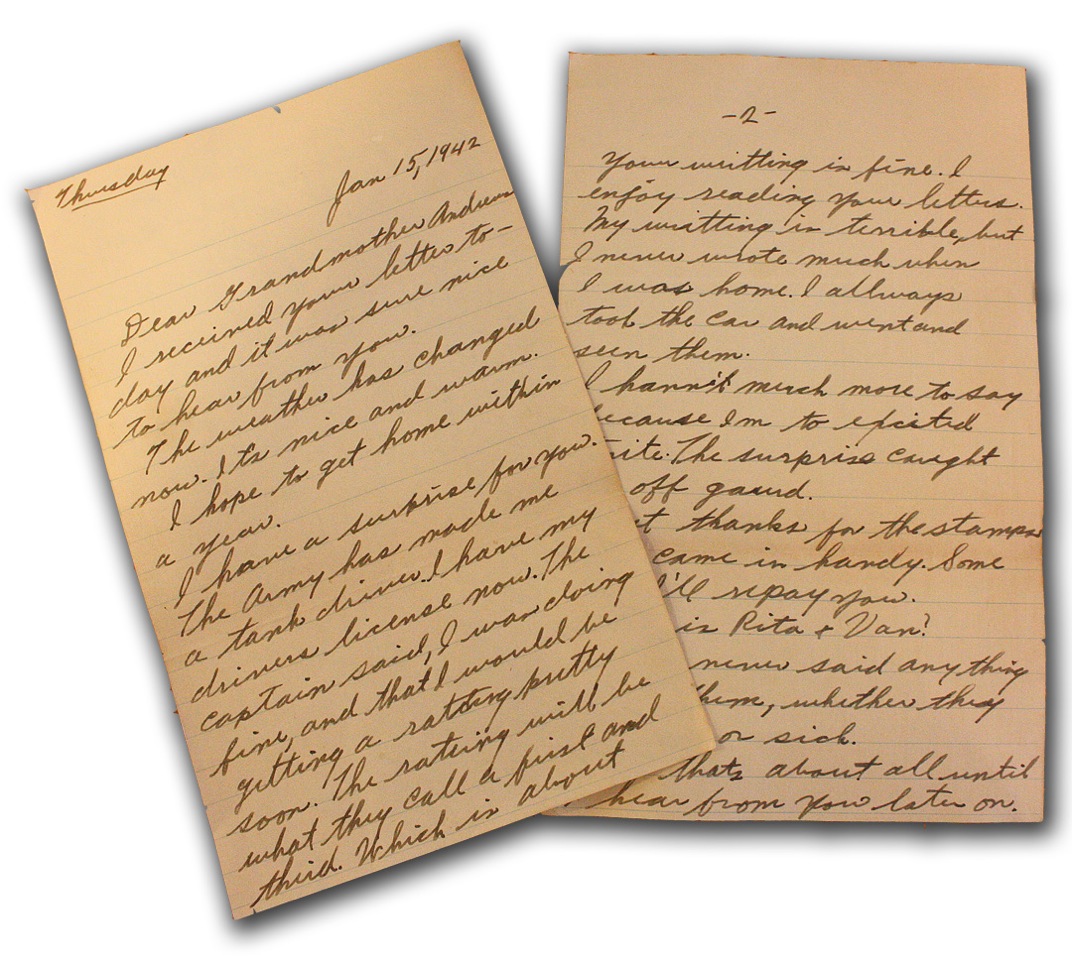 Thursday
Jan 15, 1942
Dear Grandmother Andrews
I received your letter to-
day and it was sure nice
to hear from you.
The weather has changed
now. It's nice and warm.
I hope to get home within
a year.
I have a surprise for you.
The Army has made me
a tank driver. I have my
drivers license now. The
captain said, I was doing
fine, and that I would be
getting a rateing pretty
soon. The rateing will be
what they call a first and
third. Which is about
-2-
Your writting is fine. I
enjoy reading your letters.
My writting is terrible, but
I never wrote much when
I was home. I allways
took the car and went and
seen them.
I hannt much more to say
because Im to excited
nite. The surprise caught
off gaurd.
thanks for the stamps
came in handy. Some
I'll repay you.
is Rita + Van?
never said any thing
them, whether they
or sick.
thats about all until
hear from you later on.